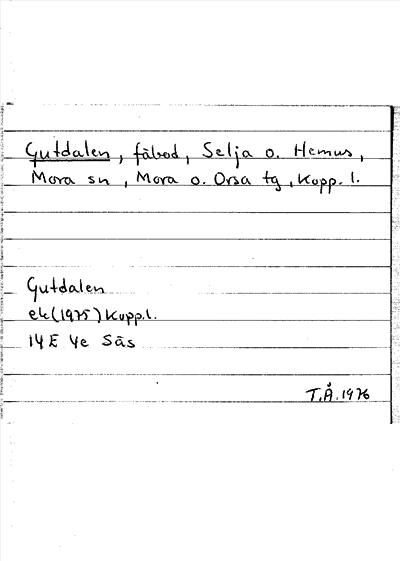 Gutdalen, fäbod, Selja o. Hemus,
Mora sn, Mora o. Orsa tg, Kopp. l.
Gutdalen
ek (1975) Kopp.l.
14 E 4e Sås
T.Å. 1976